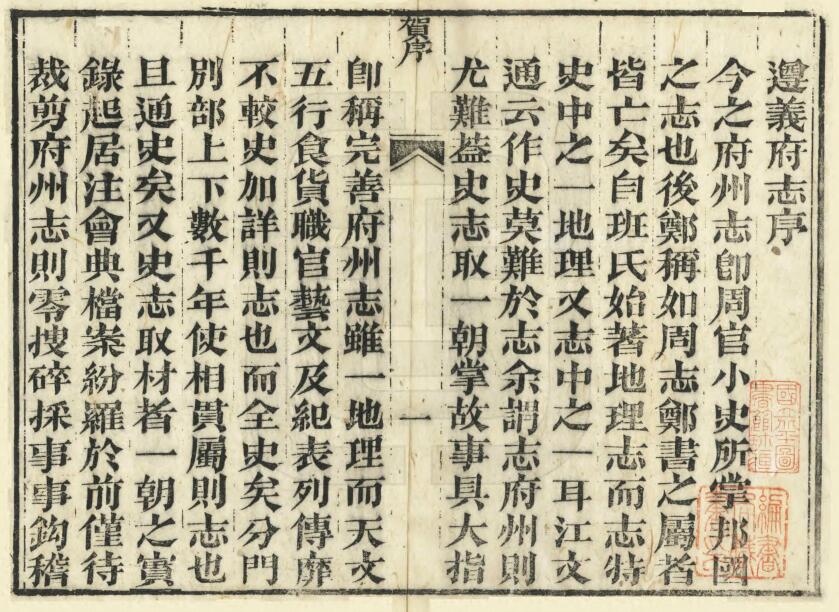 遵義府志序
今之府州志卽周官小史所掌邦國
之志也後鄭稱如周志鄭書之屬者
皆亡矣自班氏始著地理志而志特
史中之一地理又志中之一耳江文
通云作史莫難於志余謂志府州則
尤難葢史志取一朝掌故事具大指
賀序
一
卽稱完善府州志雖一地理而天文
五行食貨職官藝文及紀表列傳靡
不較史加詳則志也而全史矣分門
別部上下數千年使相貫屬則志也
且通史矣又史志取材者一朝之實
錄起居注會典檔案紛羅於前僅待
裁剪府州志則零搜碎採事事鈎稽